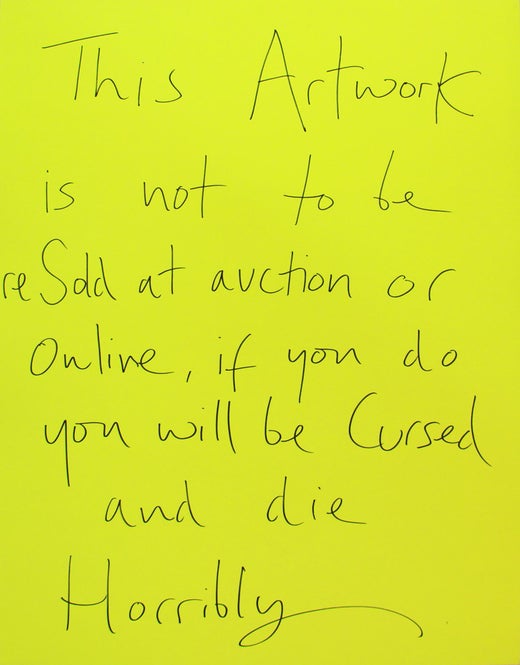 This Artwork
is not to be
reSold at auction or
Online, if you do
you will be Cursed
and die
Horribly